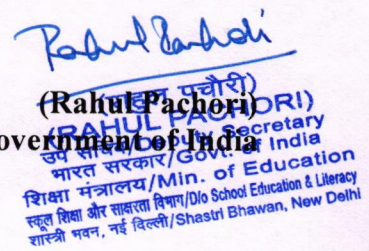 Rahul Pachori
(Rahul Pachori)
overnment of India
(राहुल पचौरी)
(RAHUL PACHORI)
उप सचिव/Deputy Secretary
भारत सरकार/Govt. of India
शिक्षा मंत्रालय/Min. of Education
स्कूल शिक्षा और साक्षरता विभाग/D/o School Education & Literacy
शास्त्री भवन, नई दिल्ली/Shastri Bhawan, New Delhi